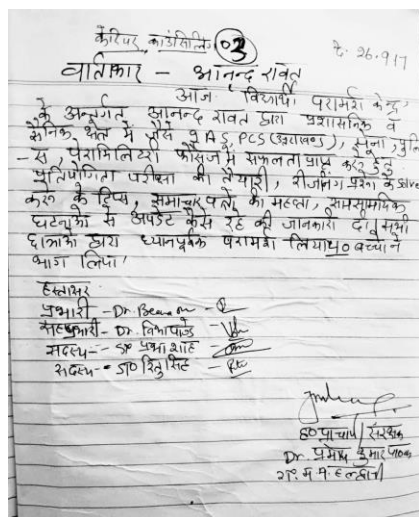 कैरियर काउंसिलिंग 03
दि. 26.9.17
वार्ताकार – आनन्द रावत
आज विद्यार्थी परामर्श केन्द्र
के अन्तर्गत आनन्द रावत द्वारा प्रशासनिक व
सैनिक क्षेत्र में जैसे IAS, PCS (उत्तराखण्ड), सेना, पुलि
-स, पैरामिलिटरी फोर्सेज में सफलता प्राप्त करने हेतु
प्रतियोगिता परीक्षा की तैयारी, रीजनिंग प्रश्न को solve
करने के टिप्स, समाचार पत्रों की महत्ता, सामसामयिक
घटनाओं से अपडेट कैसे रहें की जानकारी दी। सभी
छात्राओं द्वारा ध्यानपूर्वक परामर्श लिया। 40 बच्चों ने
भाग लिया।
हस्ताक्षर
प्रभारी – Dr.
सहप्रभारी – Dr. विभा पाण्डे
सदस्य – डा० प्रभा शाह
सदस्य – डा० रितु सिंह
प्राचार्य / संरक्षक
Dr. प्रमोद कुमार पाठक
म. हल्द्वानी